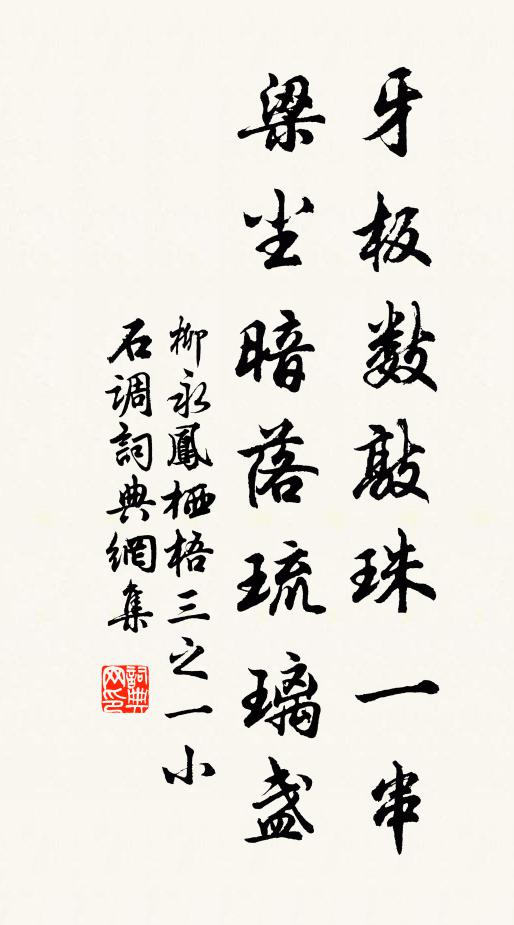 牙板數敲珠一串
梁尘暗落琉璃盏
柳永鳳栖梧三之一小
石调詞典網集
詞典
网印